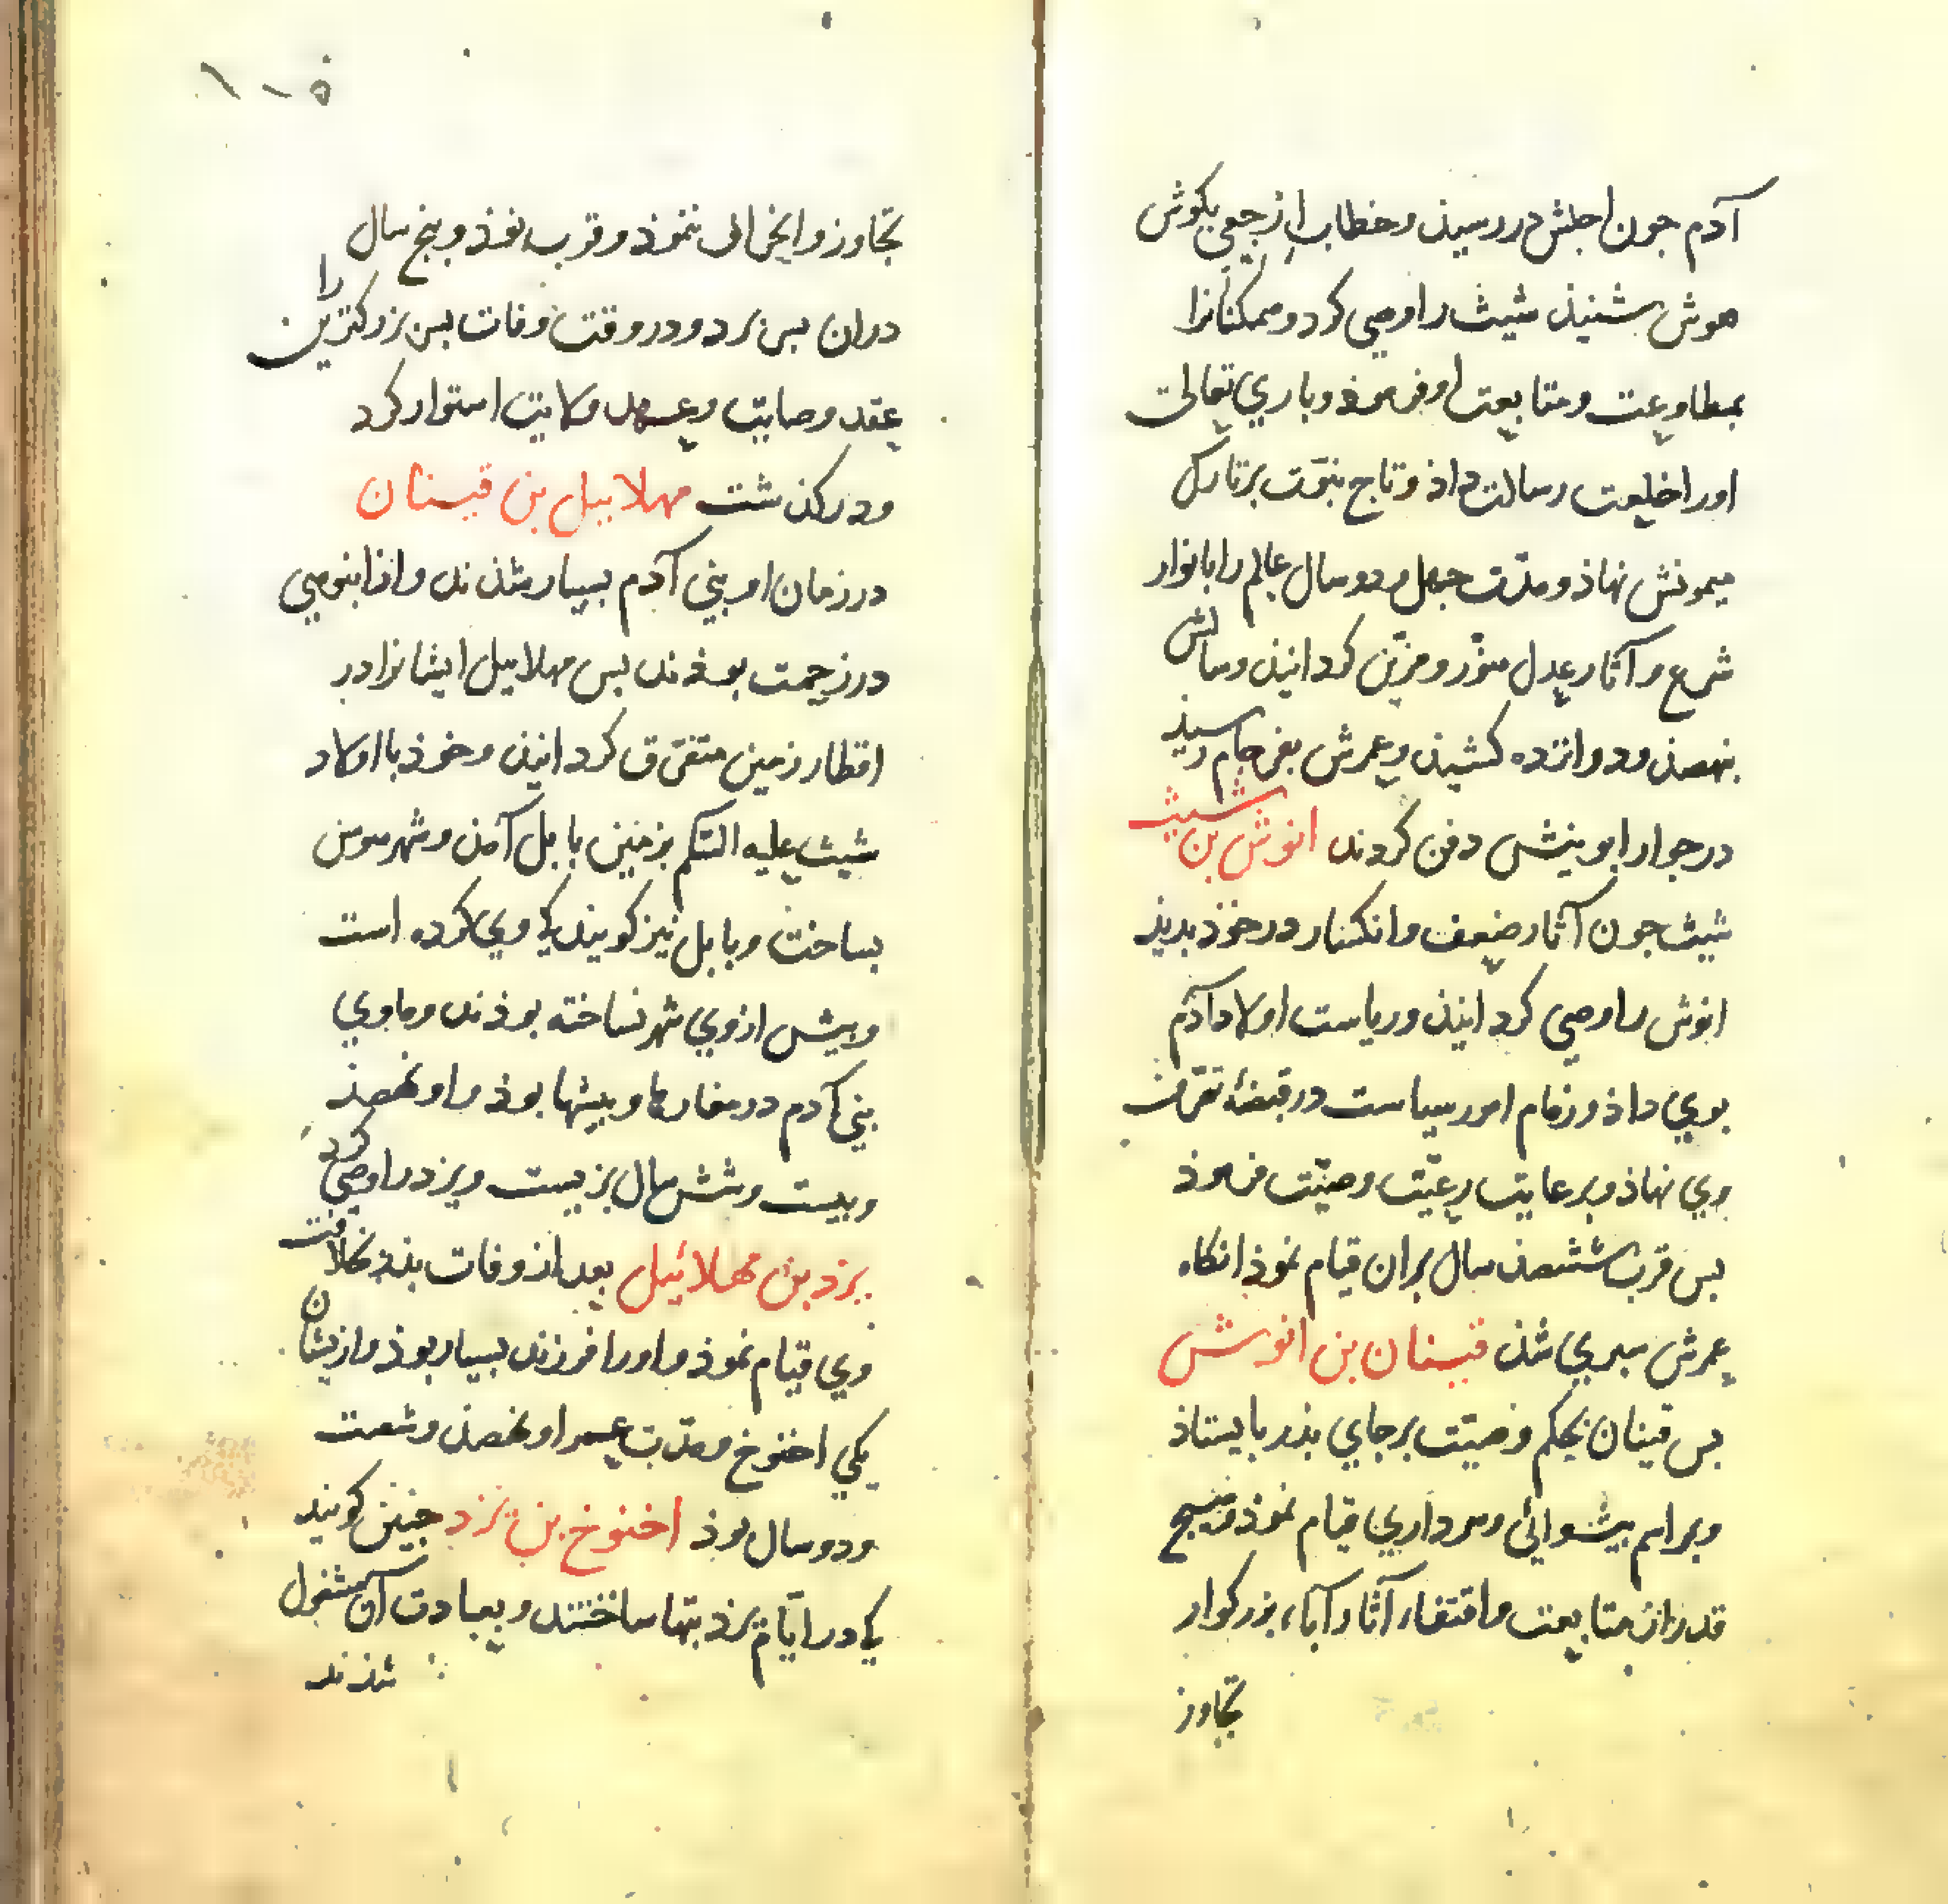 آدم جون اجلش در رسیذ و خطاب ارجعی بکوش
هوش شنیذ شیث را وصی کرد و ممکنانرا
بمطاوعت و متابعت او فرموذ و باری تعالی
اورا خلعت رسالت داذ و تاج نبوّت بر تارک
میمونش نهاذ و مدّت جهل و دو سال عالم را بانوار
شرع و آثار عدل منوّر و مزیّن کردانیذ و سالش
بنهصذ و دوازده کشیذ و عمرش بفرجام رسیذ
در جوار ابوینش دفن کردند انوش بن شیث
شیث جون آثار ضعف و انکسار در خوذ بدیذ
انوش را وصی کردانیذ و ریاست اولاد آدم
بوی داذ و زمام امور سیاست در قبضهٔ تصرّف
وی نهاذ و برعایت رعیّت وصیّت فرموذ
بس قرب ششصذ سال بران قیام نموذ انکاه
عمرش سبری شذ قینان بن انوش
بس قینان بحکم وصیّت بر جای بذر بایستاذ
و بر اسم بیشوائی و سرداری قیام نموذ و هیج
قدر از متابعت و اقتفاء آثار آباء بزرکوار
تجاوز
۱۰۵
تجاوز و انحراف ننموذ و قرب نوذ و بنج سال
دران بسر برد و در وقت وفات بسر بزرکترین را
عقد وصایت و عهد ولایت استوار کرد
و درکذشت مهلاییل بن قینان
در زمان او بنی آدم بسیار شذند و از انبوهی
در زحمت بوذند بس مهلاییل ایشانرا در
اقطار زمین متفرّق کردانیذ و خوذ با اولاد
شیث علیه السّلم بزمین بابل آمذ و شهر سوس
بساخت و بابل نیز کویند کی وی کرده است
و بیش از وی شهر نساخته بوذند و ماوی
بنی آدم در مغارها و بیشها بوذ و او نهصذ
و بیست و شش سال بزیست و یرد را وصی کرد
یرد بن مهلائیل بعد از وفات بذر بخلافت
وی قیام نموذ و اورا فرزند بسیار بوذ و ازیشان
یکی اخنوخ و مدّت عمر او نهصذ و شصت
و دو سال بوذ اخنوخ بن یرد جنین کویند
کی در ایّام یرد بتها ساختند و بعبادت آن مشغول
شذند